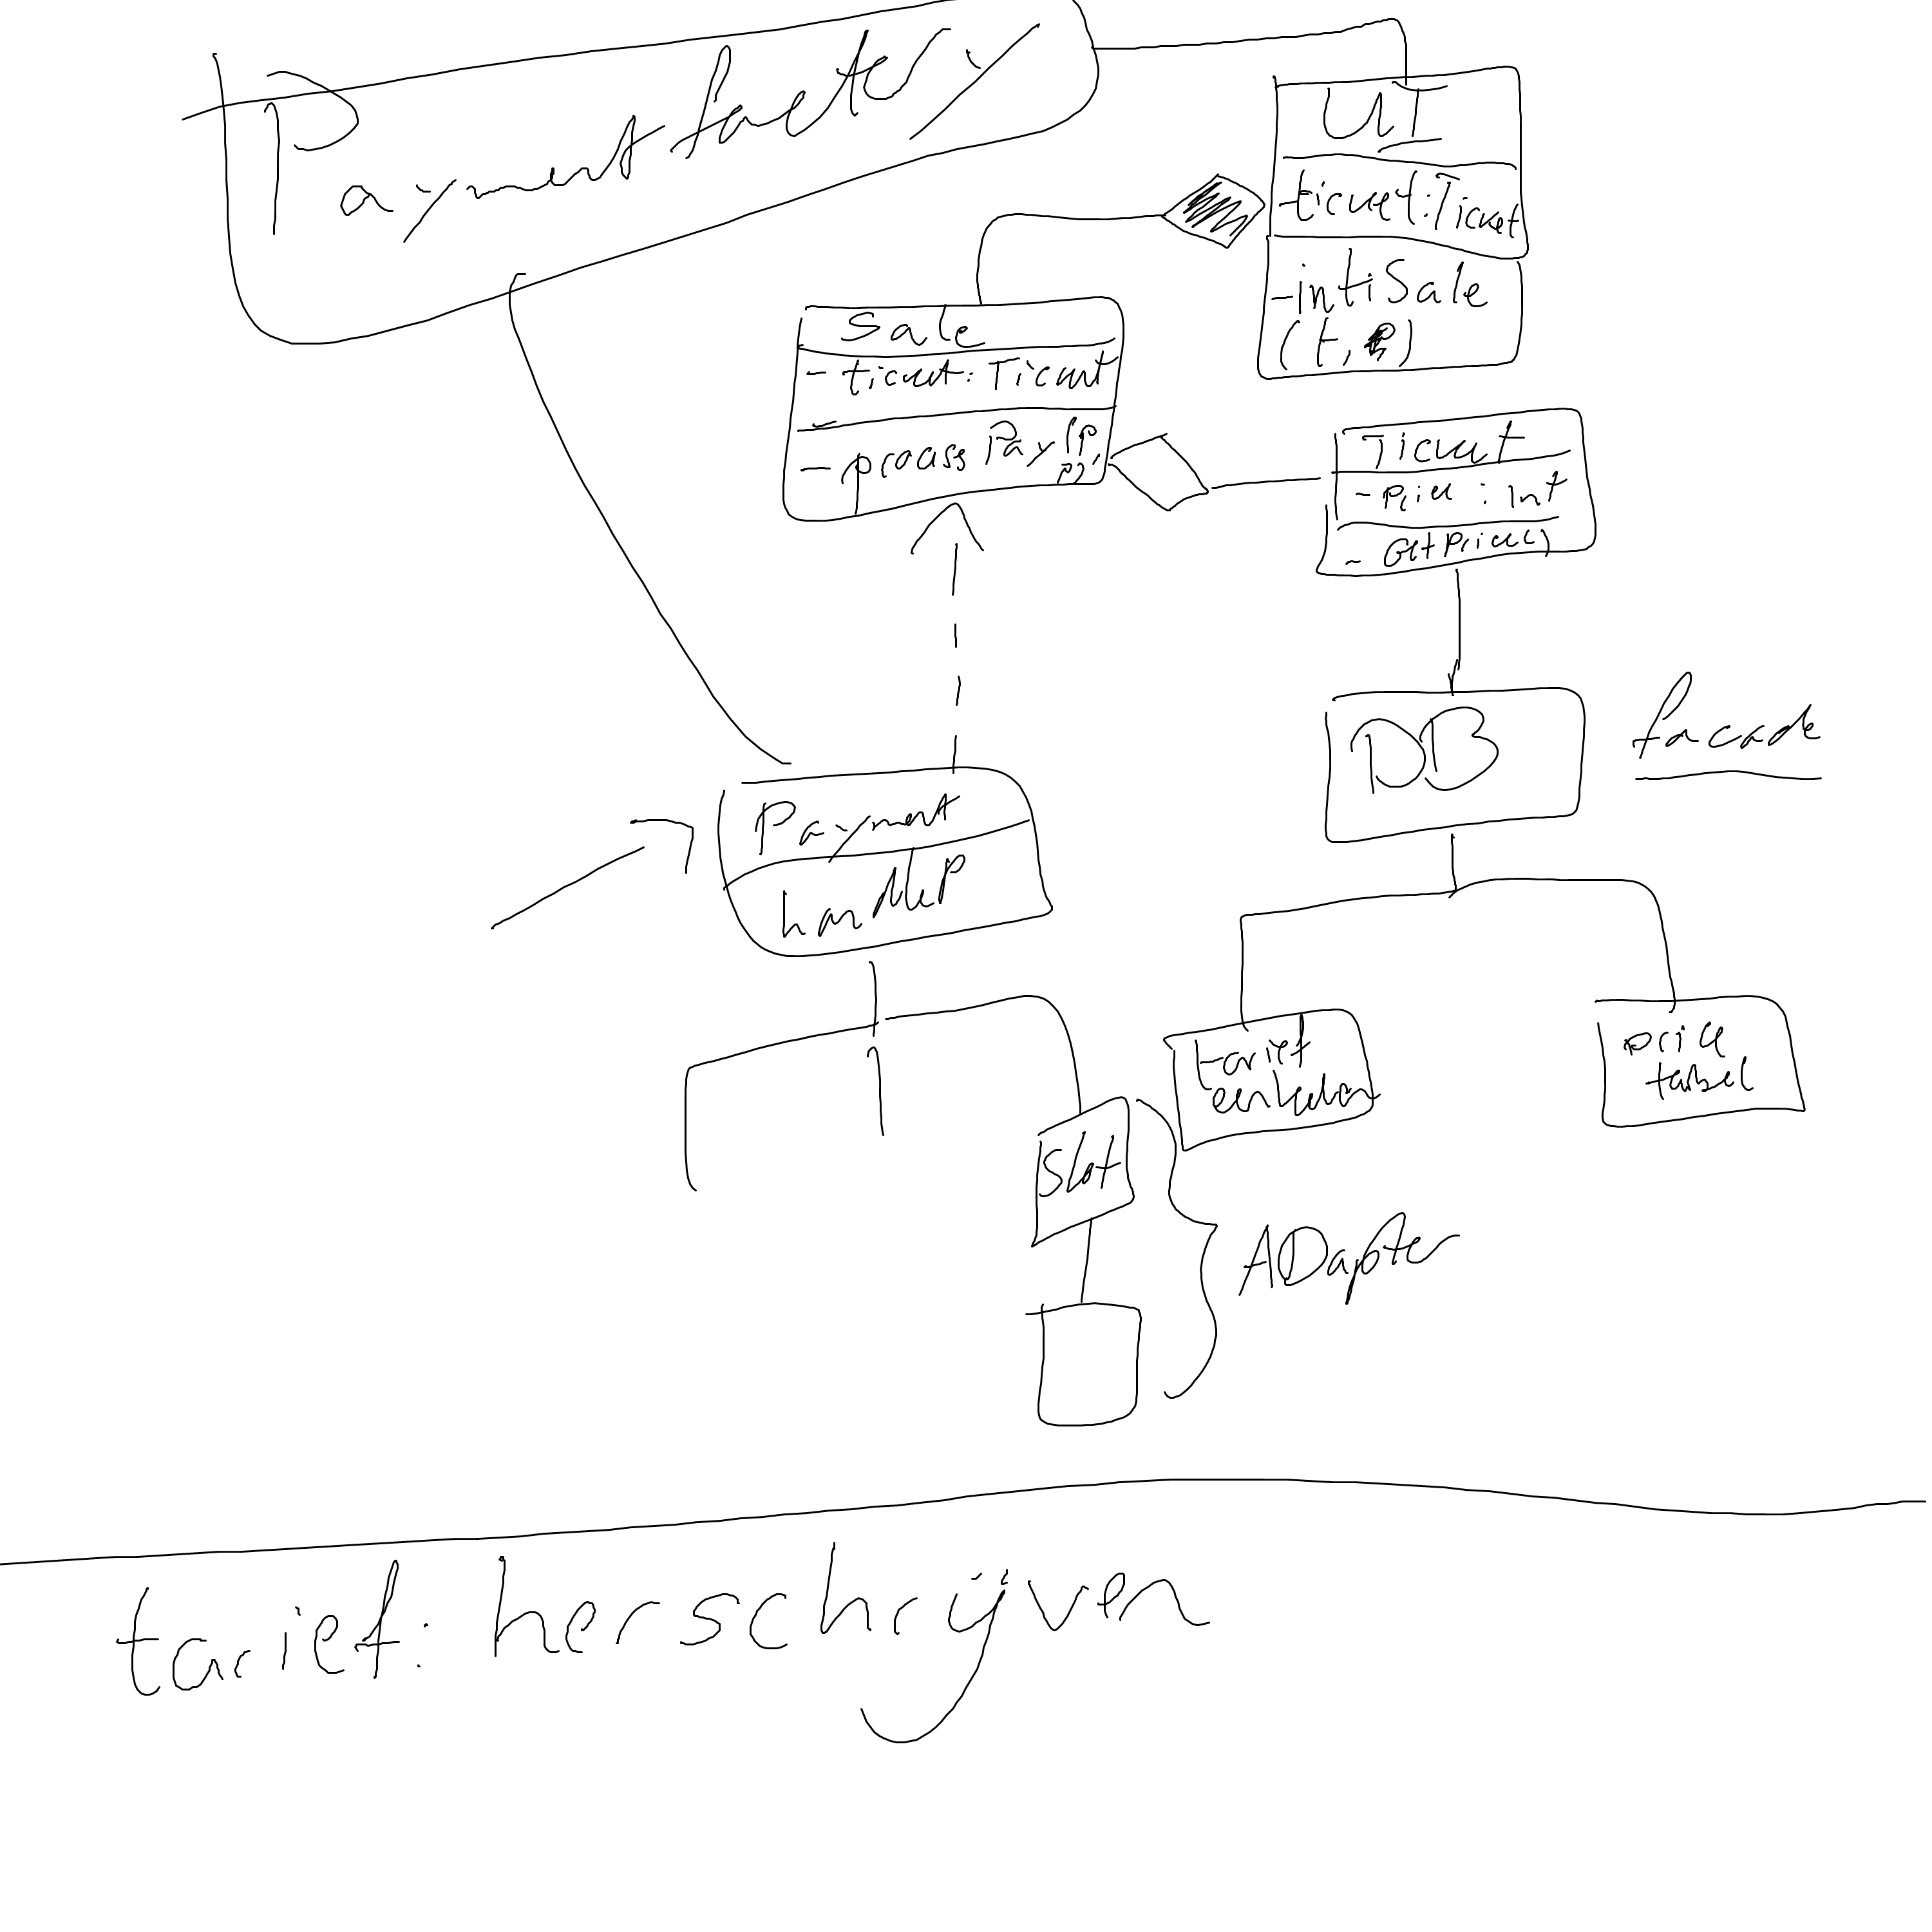 Paymentfactory
UI
ticket:Ticket
intiSale
(t,
Sale
- ticket: Ticket
- proces Pay(P
Ticket
- Price : int
- getPrice()
DB
facade
Payment
handleP
Tarief
prijs
tabel
Slot
ADapter
tarief: herschrijven